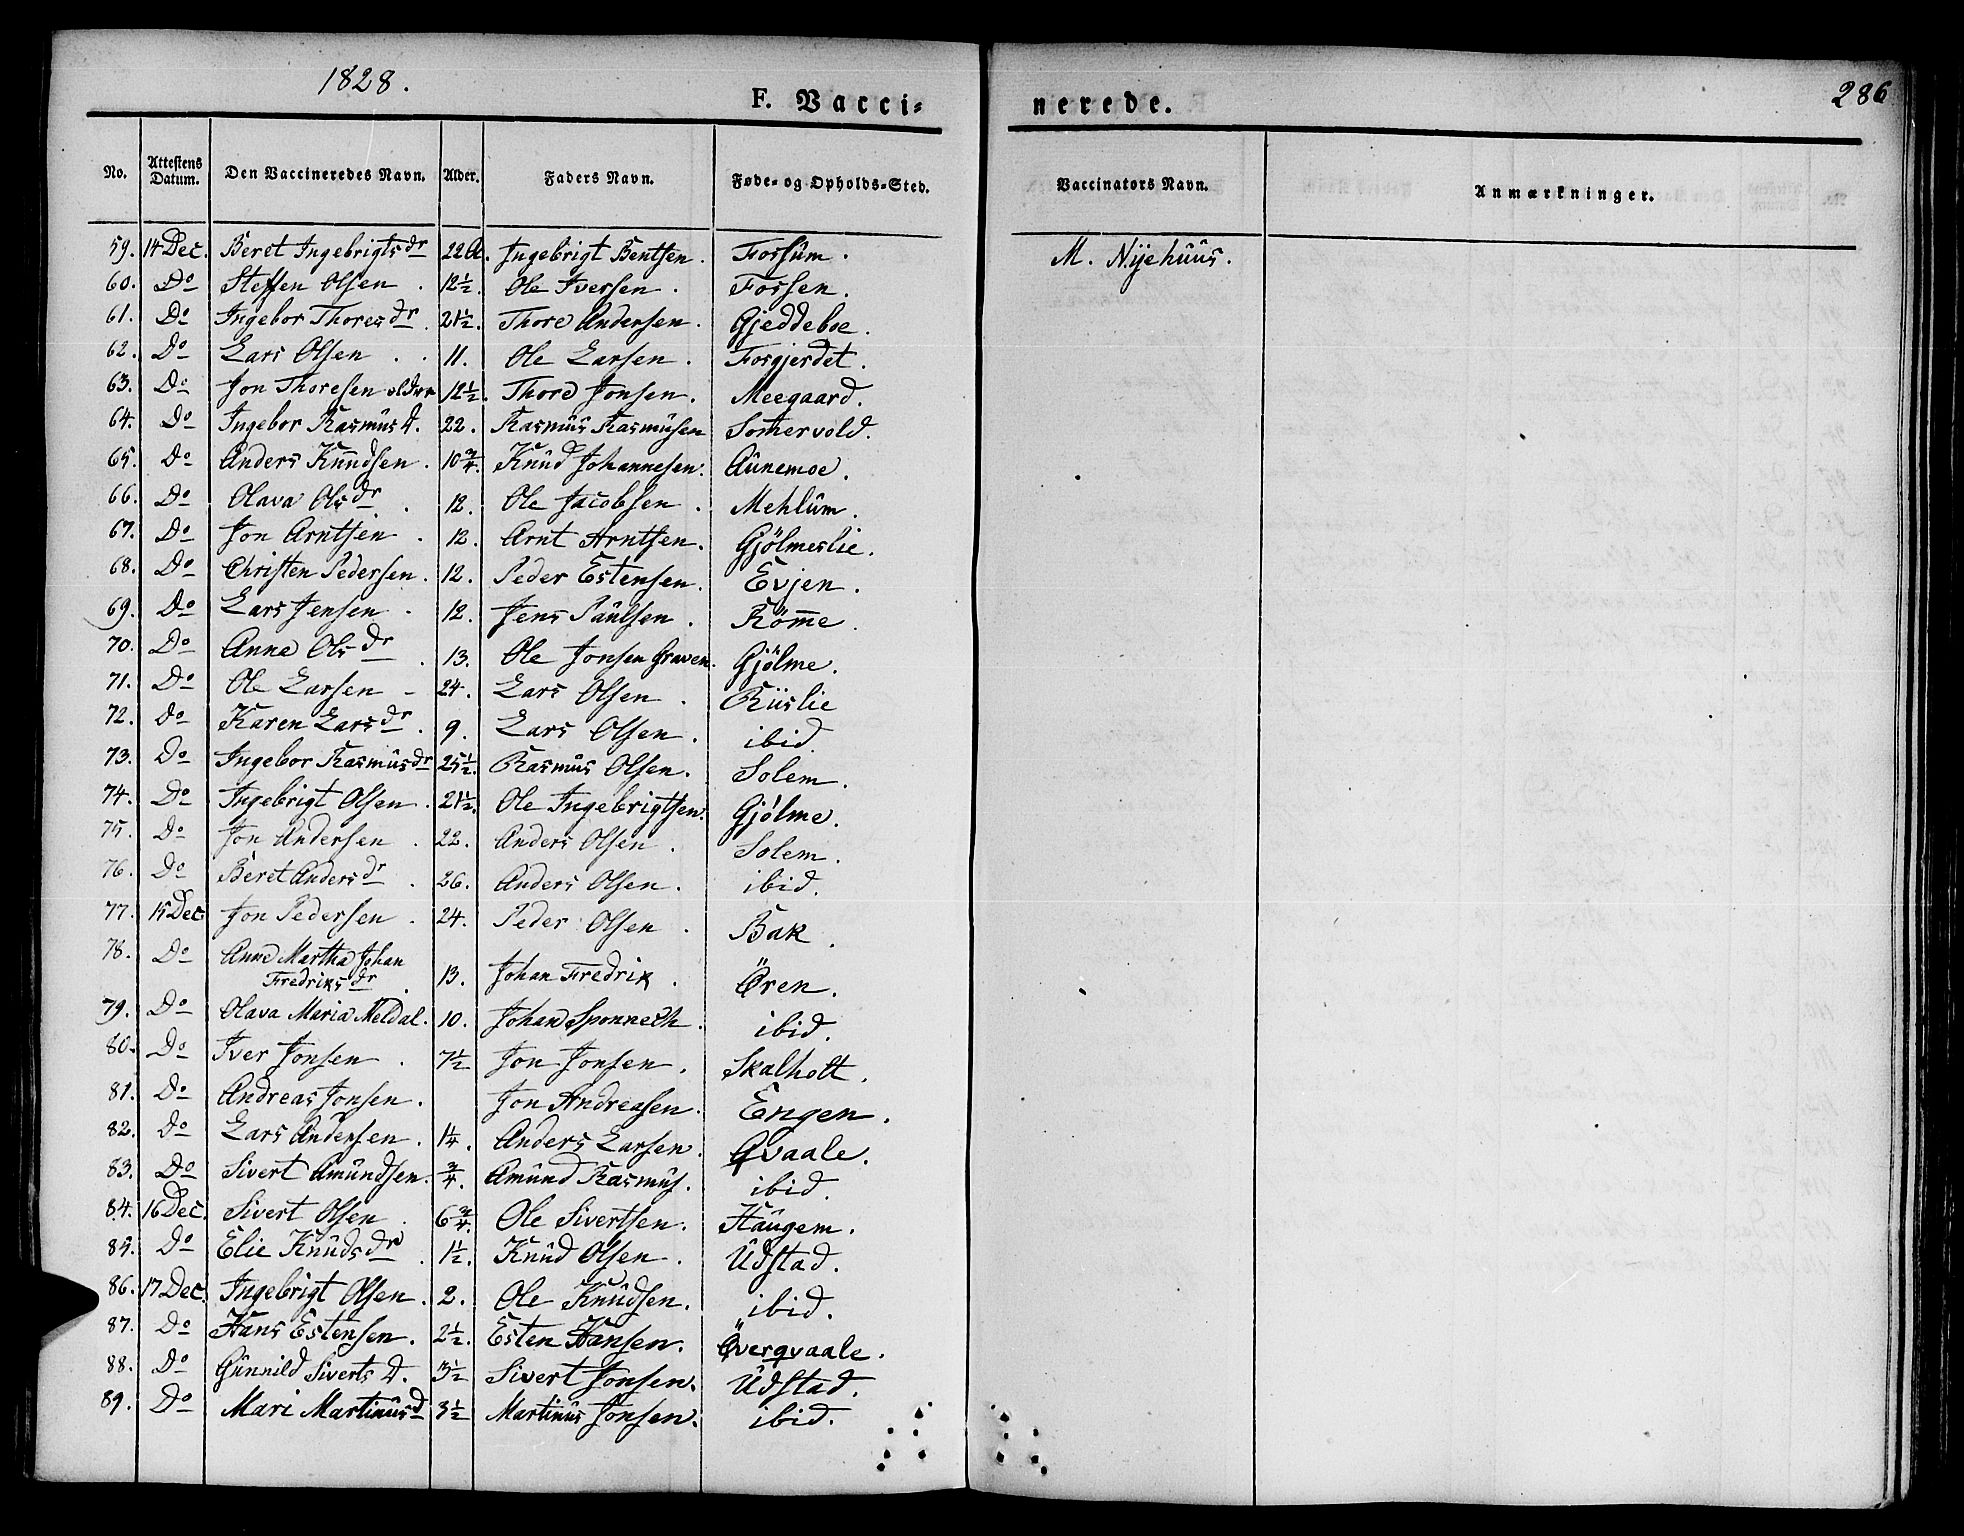 1828.
F. Vacci-
nerede.
286
No. Attestens Datum. Den Vaccineredes Navn. Alder. Faders Navn. Føde- og Opholds-Sted. Vaccinators Navn. Anmærkninger.
59. 14 Dec. Beret Ingebrigtsdr 22 Ingebrigt Bentsen. Forsum. M. Nijehuus.
60. Do Steffen Olsen. 12½. Ole Iversen. Fossen.
61. Do Ingebor Thoresdr. 21½. Thore Andersen. Gjeddeboe.
62. Do Lars Olsen.. 11. Ole Larsen. Forgjerdet.
63. Do Jon Thoresen 12½. Thore Jonsen. Meegaard.
64. Do Ingebor Rasmus D. 22. Rasmus Rasmusen Somervold.
65. Do Anders Knudsen. 10¾. Knud Johannesen. Aunemoe.
66. Do Olava Olsdr. 12. Ole Jacobsen. Mehlum.
67. Do Jon Arntsen. 12. Arnt Arntsen. Gjölmeslie.
68. Do Christen Pedersen. 12. Peder Estensen. Evjen.
69. Do Lars Jensen. 12. Jens Paulsen. Römme.
70. Do Anne Olsdr. 13. Ole Jonsen Graven. Gjölme.
71. Do Ole Larsen - 24. Lars Olsen. Riislie
72. Do Karen Larsdr. 9. Lars Olsen. ibid.
73. Do Ingebor Rasmusdr 25½. Rasmus Olsen. Solem.
74. Do Ingebrigt Olsen. 21½. Ole Ingebrigtsen. Gjölme.
75. Do Jon Andersen. 22. Anders Olsen. Solem.
76. Do Beret Andersdr. 26. Anders Olsen. ibid.
77. 15 Dec Jon Pedersen. 24. Peder Olsen. Bak.
78. Do Anne Martha Johan
Fredriksdr. 13. Johan Fredrik. Ören.
79. Do Olava Maria Meldal. 10. Johan Sponnech. ibid.
80. Do Iver Jonsen. 7½ Jon Jonsen. Skalholt.
81. Do Andreas Jonsen. Jon Andreasen. Engen.
82. Do Lars Andersen. 1¼. Anders Larsen. Qvaale.
83. Do Sivert Amundsen. ¾. Amund Rasmus. ibid.
84. 16 Dec. Sivert Olsen. 6¾. Ole Sivertsen. Haugem.
85. Do Elie Knudsdr. 1½. Knud Olsen. Udstad.
86. 17 Dec. Ingebrigt Olsen. 2. Ole Knudsen. ibid.
87. Do Hans Estensen. 2½. Esten Hansen. Överqvaale.
88. Do Gunnild Siverts D. 3½ Sivert Jonsen. Udstad.
89. Do Mari Martinusd 3½ Martinus Jonsen. ibid.